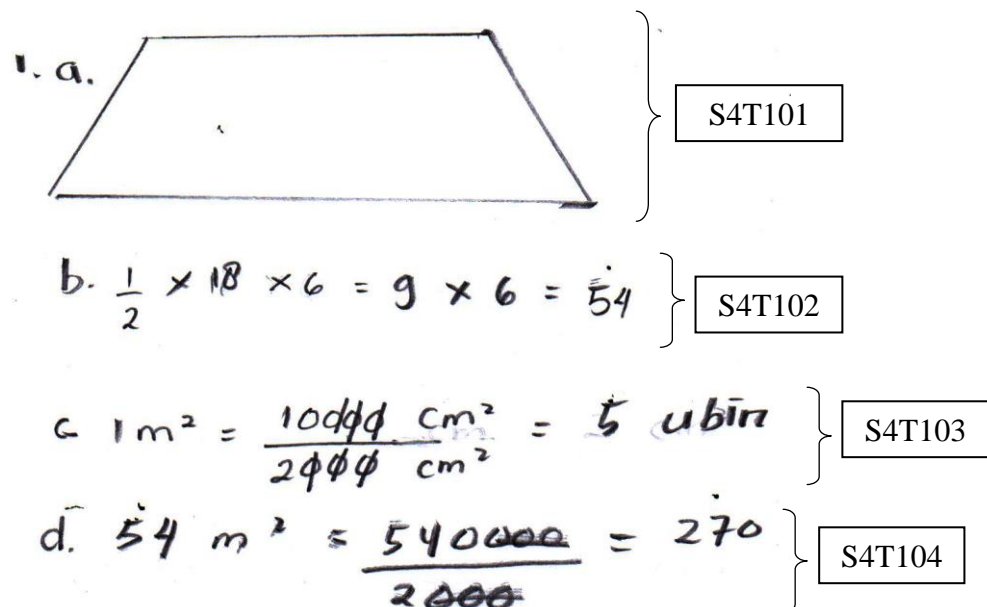 1. a.
S4T101
b. 1/2 × 18 × 6 = 9 × 6 = 54
S4T102
c 1 m² = 10000 cm² / 2000 cm² = 5 ubin
S4T103
d. 54 m² = 540000 / 2000 = 270
S4T104